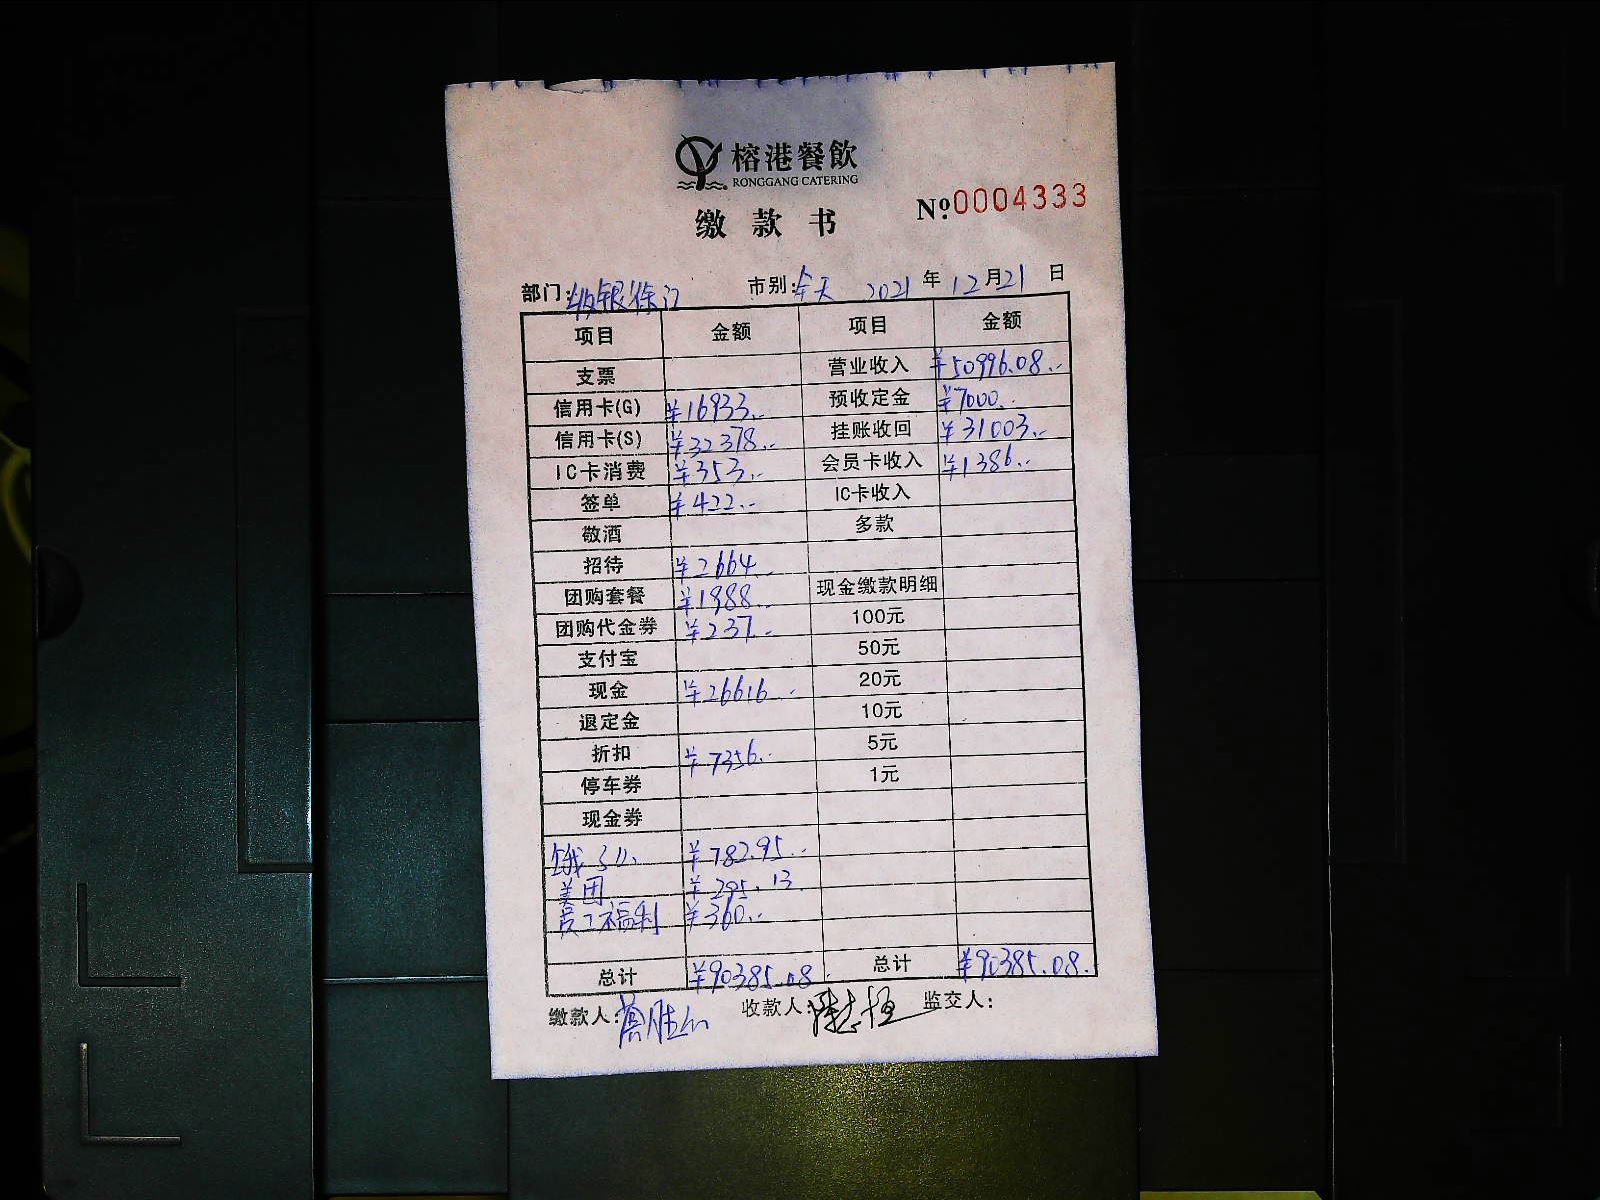 榕港餐飲
RONGGANG CATERING
缴款书 №0004333
部门: 收银 市别: 全天 2021年12月21日
项目 金额 项目 金额
支票 营业收入 ¥50996.08
信用卡(G) ¥16933 预收定金 ¥7000
信用卡(S) ¥32378 挂账收回 ¥31003
IC卡消费 ¥353 会员卡收入 ¥1386
签单 ¥422 IC卡收入
敬酒 多款
招待 ¥2664
团购套餐 ¥1988 现金缴款明细
团购代金券 ¥237 100元
支付宝 50元
现金 ¥26616 20元
退定金 10元
折扣 ¥7356 5元
停车券 1元
现金券
饿了么 ¥782.95
美团 ¥295.13
员工福利 ¥360
总计 ¥90385.08 总计 ¥90385.08
缴款人: 收款人: 监交人: